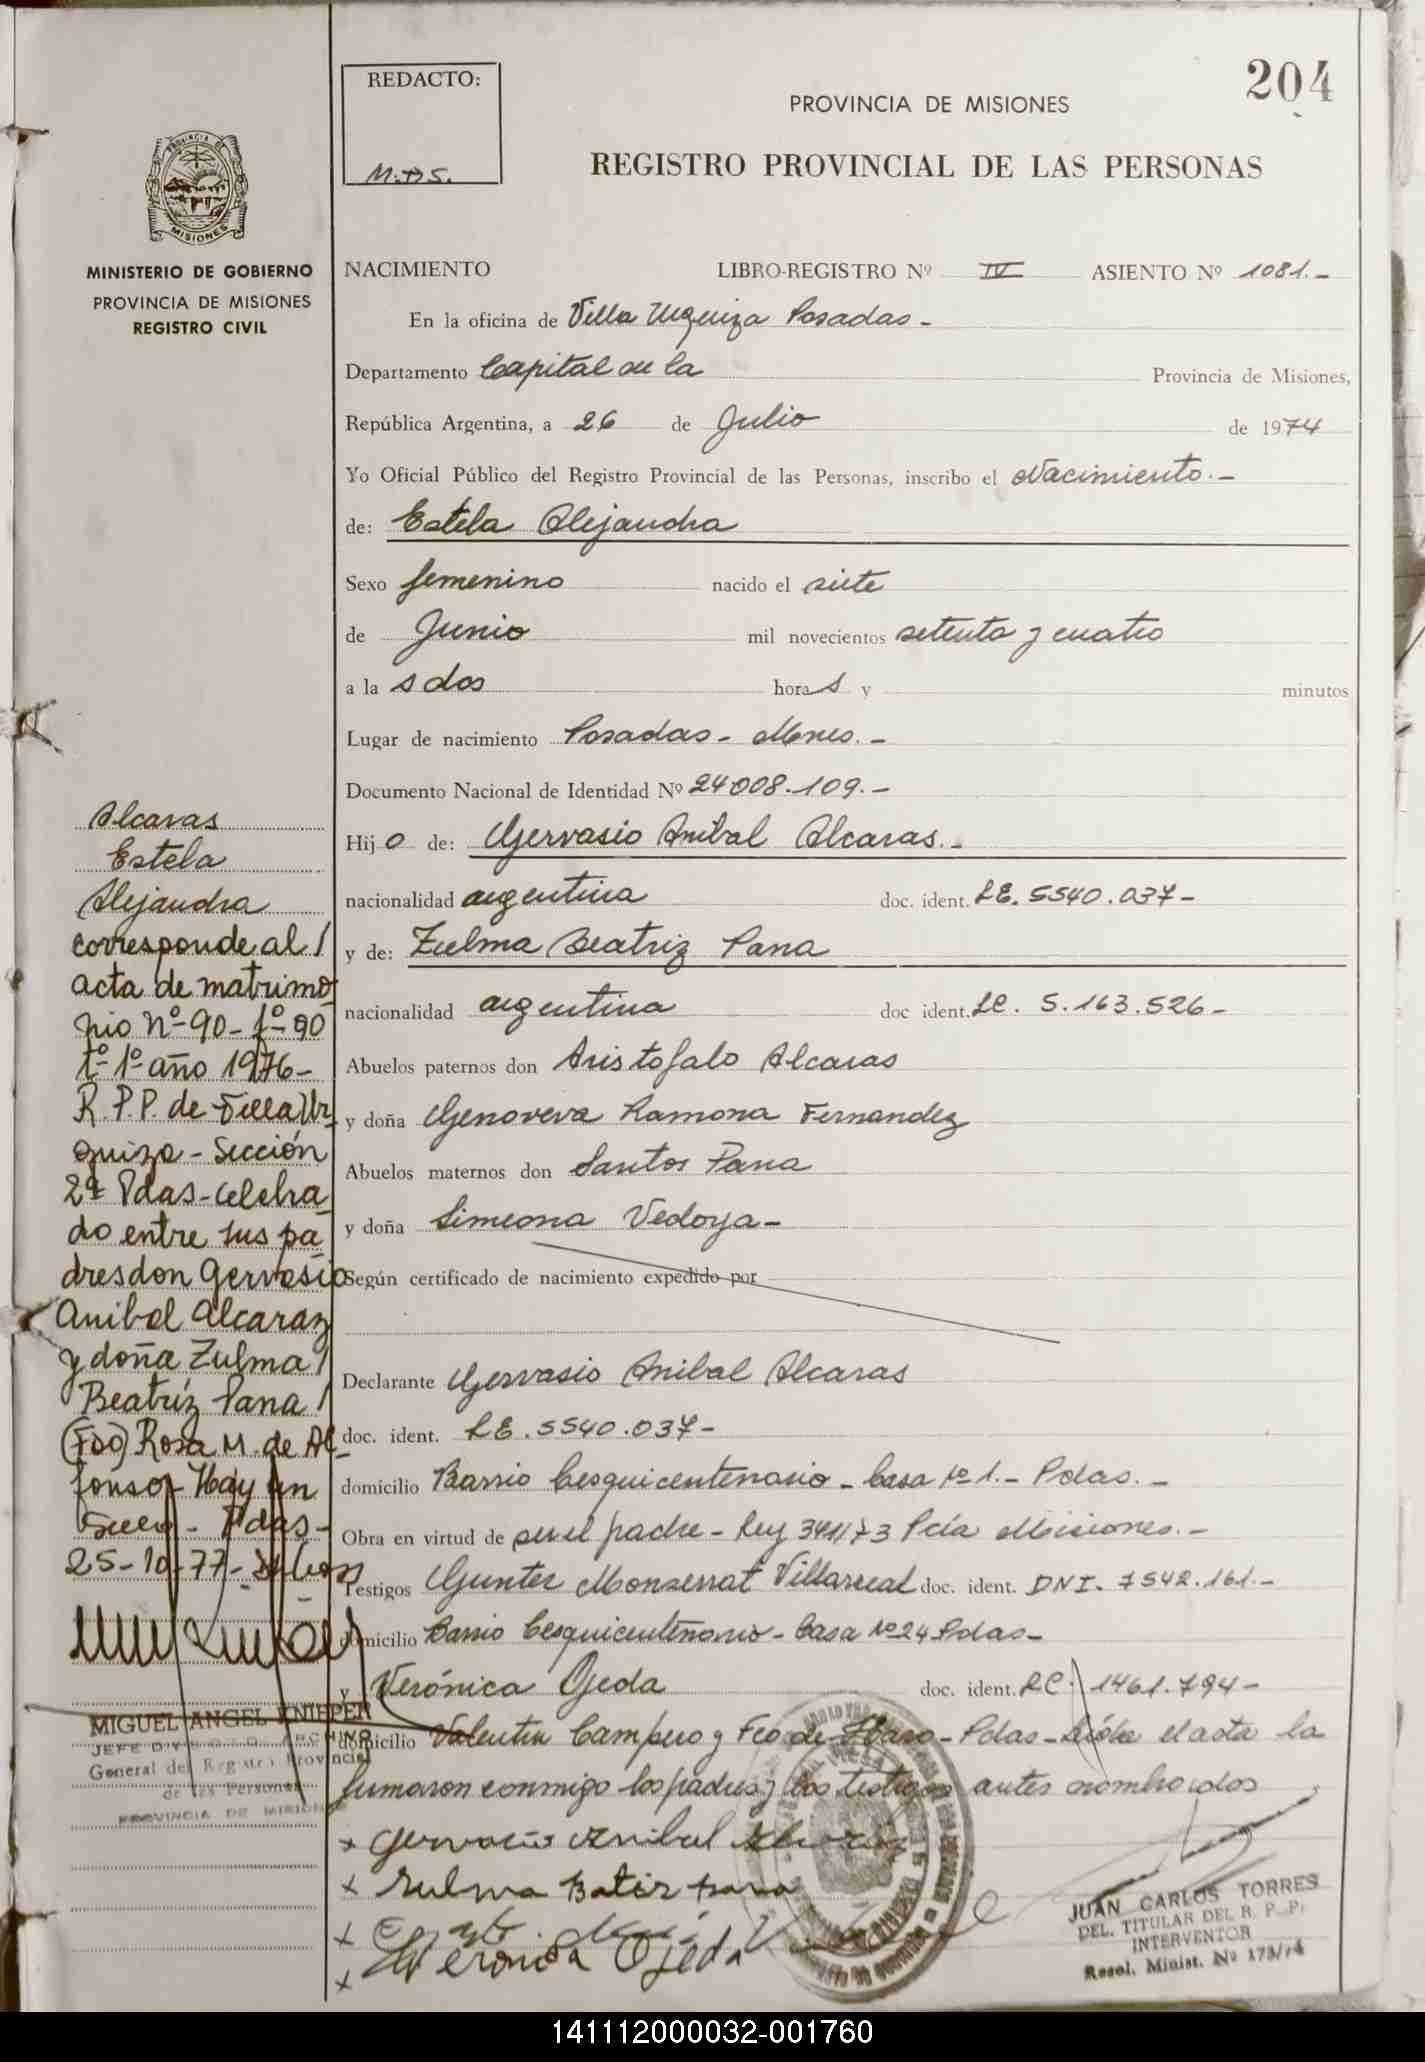 204
REDACTO:
PROVINCIA DE MISIONES
REGISTRO PROVINCIAL DE LAS PERSONAS
MISIONES
MINISTERIO DE GOBIERNO
PROVINCIA DE MISIONES
REGISTRO CIVIL
NACIMIENTO LIBRO-REGISTRO Nº IV ASIENTO Nº 1081.-
En la oficina de Villa Urquiza Posadas-
Departamento Capital de la Provincia de Misiones,
República Argentina, a 26 de Julio de 1974
Yo Oficial Público del Registro Provincial de las Personas, inscribo el Nacimiento.-
de: Estela Alejandra
Sexo femenino nacido el siete
de Junio mil novecientos setenta y cuatro
a la s dos hora s y minutos
Lugar de nacimiento Posadas- Mnes.-
Documento Nacional de Identidad Nº 24008.109.-
Hij o de: Gervasio Anibal Alcaras.-
nacionalidad argentina doc. ident. LE. 5540.037-
y de: Zulma Beatriz Pana
nacionalidad argentina doc ident. LC. 5.163.526-
Abuelos paternos don Aristofalo Alcaras
y doña Genoveva Ramona Fernandez
Abuelos maternos don Santos Pana
y doña Simeona Vedoya-
Según certificado de nacimiento expedido por
Declarante Gervasio Anibal Alcaras
doc. ident. LE. 5540.037-
domicilio Barrio Cesquicentenario- Casa Nº 1.- Pdas.-
Obra en virtud de ser el padre- Ley 341173 Pcia Misiones.-
Testigos Gunter Monserrat Villarreal doc. ident. DNI. 7542.161.-
domicilio Barrio Cesquicentenario- Casa Nº 24 Pdas-
y Verónica Ojeda doc. ident. LC. 1461.794-
domicilio Valentin Campero y Fco de Haro- Pdas- Leída el acta la
firmaron conmigo los padres y los testigos antes nombrados
Alcaras
Estela
Alejandra
corresponde al/
acta de matrimo
nio Nº-90-fº-90
tº-1º año 1976-
R.P.P. de Villa Ur
quiza- Sección
2ª Pdas-celebra
do entre sus pa
dres don Gervasio
Anibal Alcaraz
y doña Zulma/
Beatríz Pana/
(Fdo) Rosa M. de Al
fonso- Hay un
Sello- Pdas-
25-10-77-
MIGUEL ANGEL KNIEPER
JEFE DIVISIO ARCHIVO
General del Registro Provincial
de las Personas
PROVINCIA DE MISIONES
x Gervacio Anibal
x Zulma Batir pana
x
x Veronica Ojeda
JUAN CARLOS TORRES
DEL. TITULAR DEL R. P. P.
INTERVENTOR
Resol. Minist. Nº 173/74
141112000032-001760